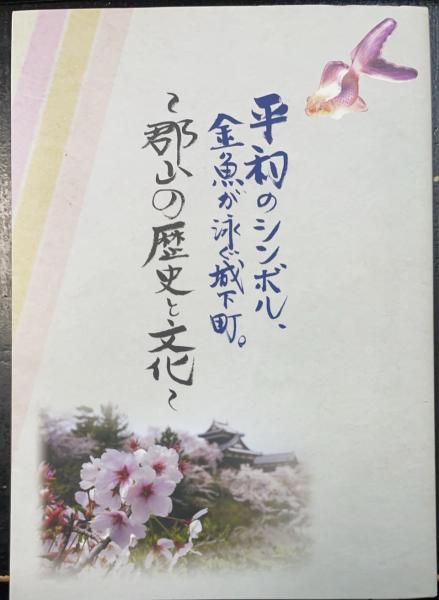 平和のシンボル、
金魚が泳ぐ城下町。
~郡山の歴史と文化~